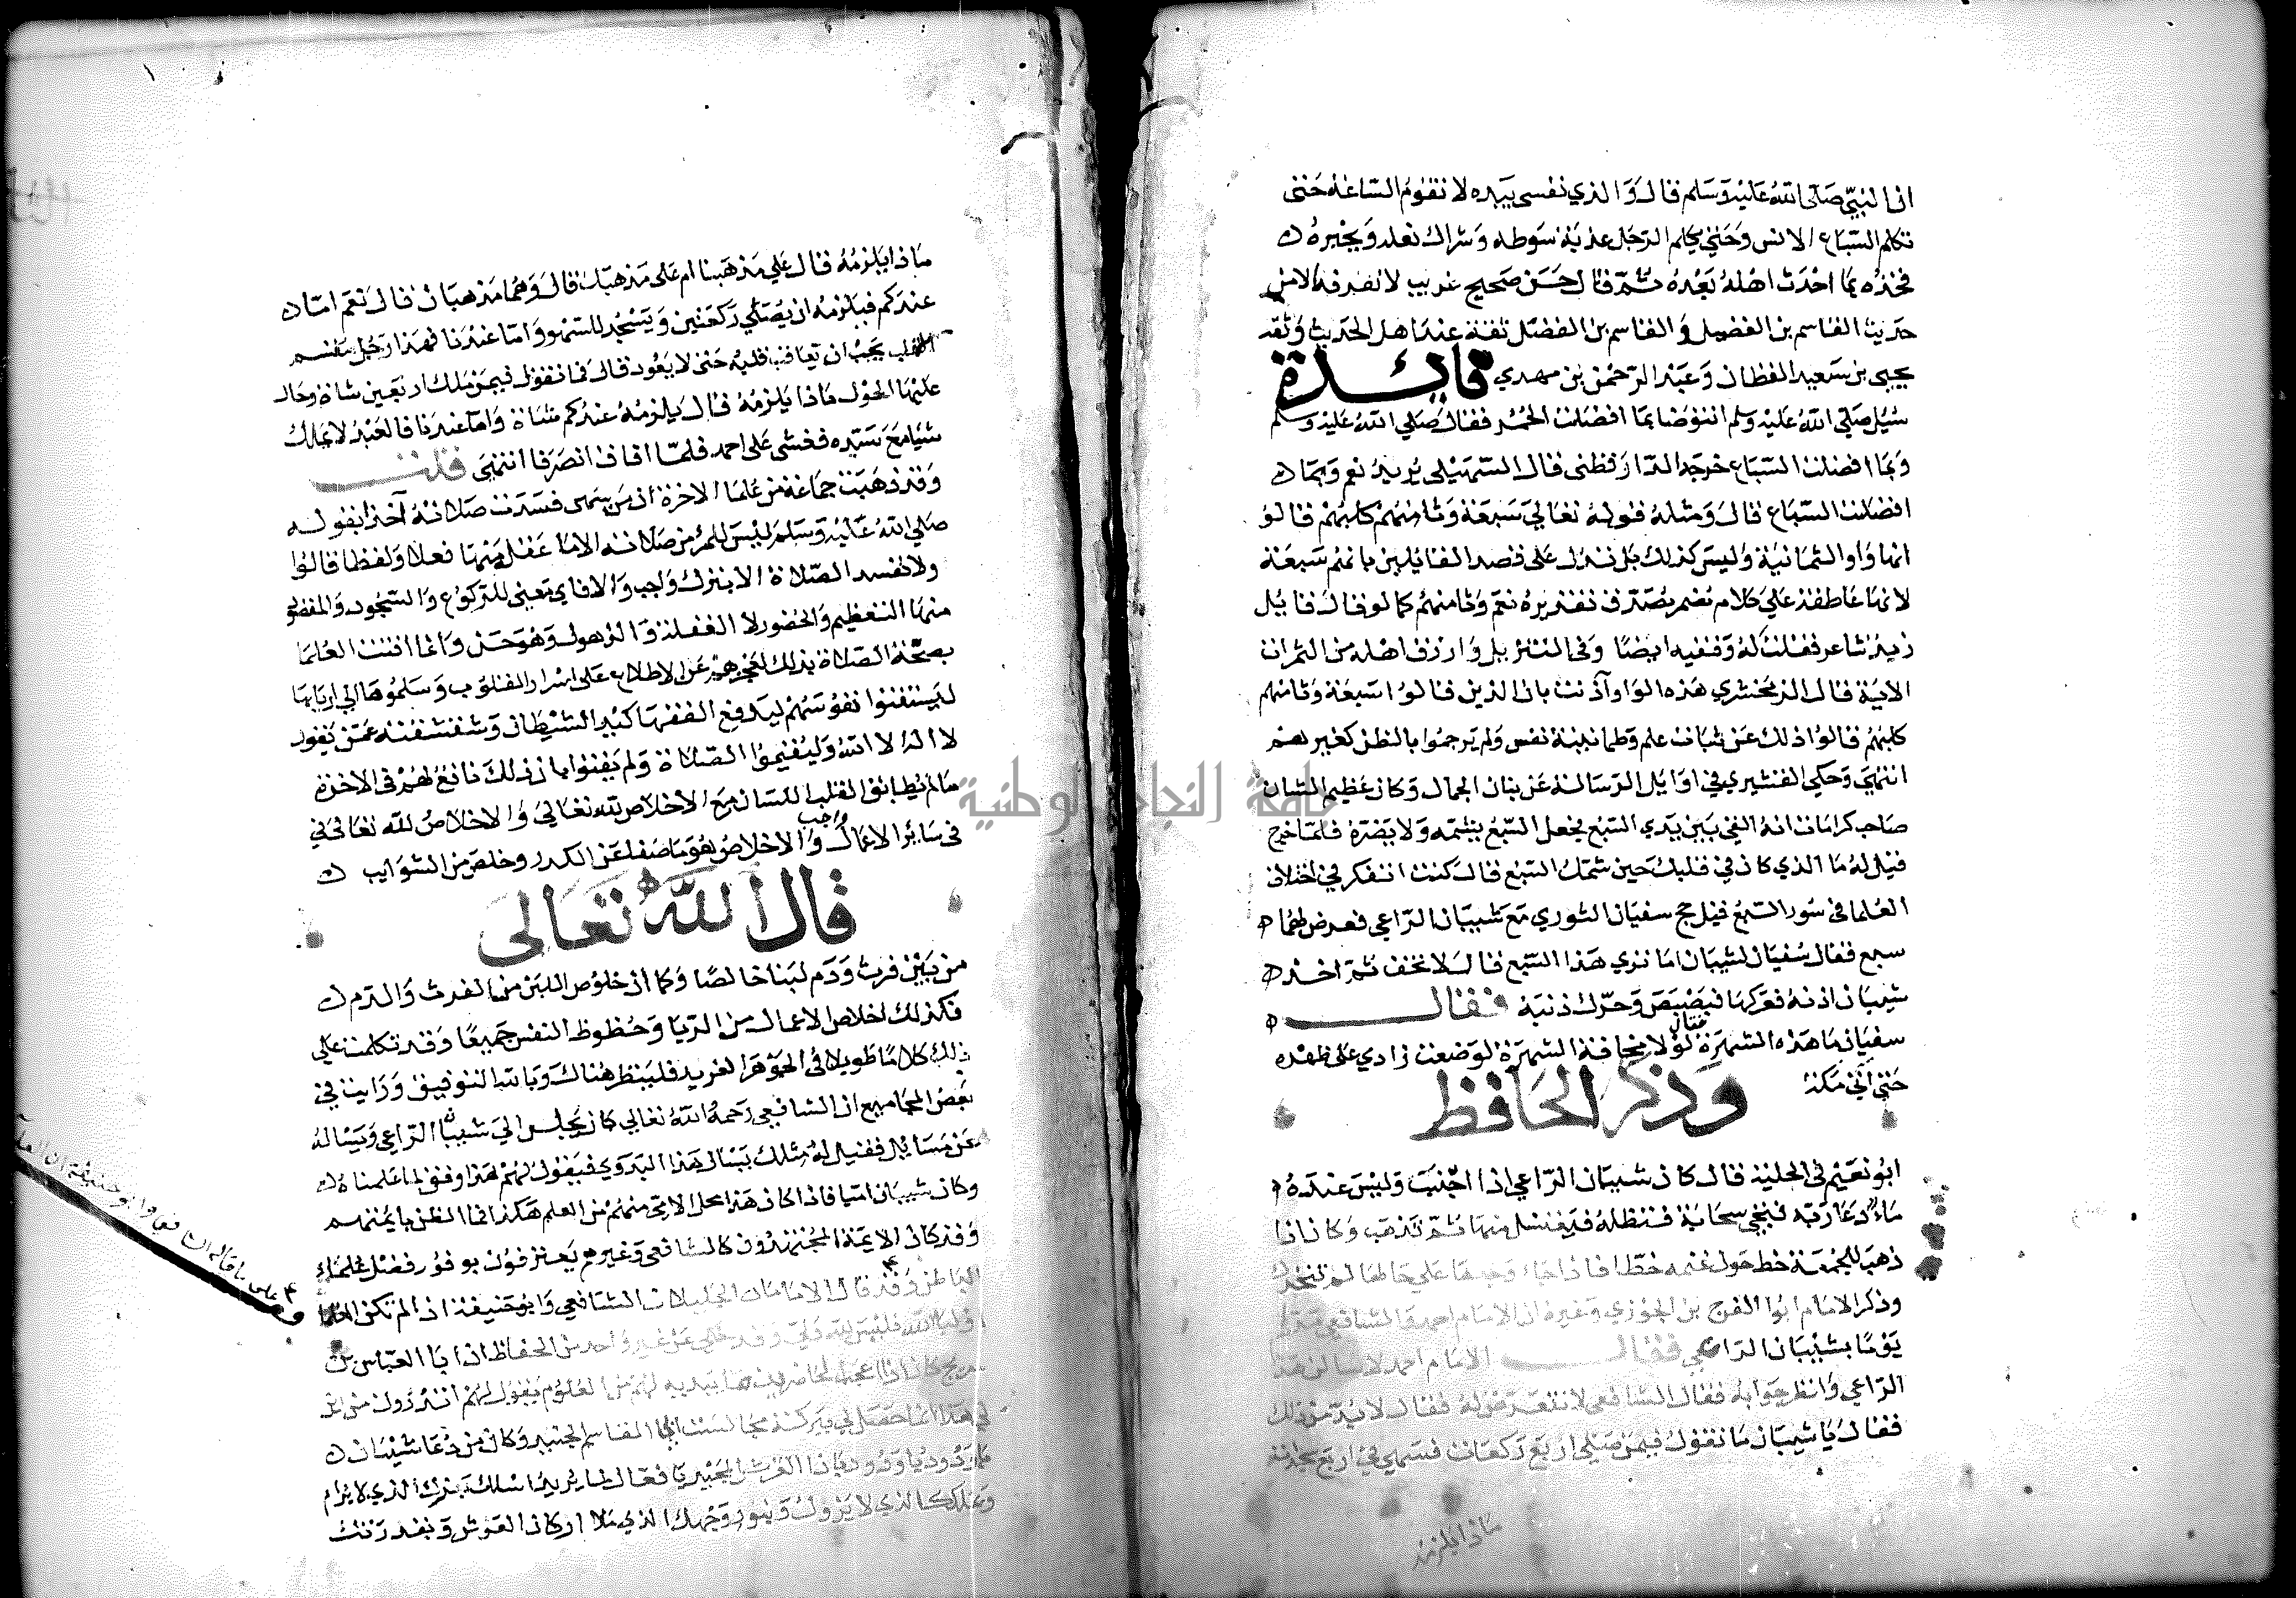 ان النبي صلى الله عليه وسلم قال والذي نفسي بيده لا تقوم الساعة حتى
تكلم السباع الانس وحتى يكلم الرجل عذبة سوطه وشراك نعله ويخبره
فخذه بما احدث اهله بعده ثم قال حسن صحيح غريب لا نعرفه الا من
حديث القاسم بن الفضل والقاسم بن الفضل ثقة عند اهل الحديث وثقه
يحيى بن سعيد القطان وعبد الرحمن بن مهدي فايدة
سئل صلى الله عليه وسلم انتوضا بما افضلت الحمر فقال صلى الله عليه وسلم
وبما افضلت السباع خرجه الدارقطني قال السهيلي يريد نعم وبما
افضلت السباع قال ومثله قوله تعالى سبعة وثامنهم كلبهم قالوا
انها واو الثمانية وليس كذلك بل تدل على قصد القائلين بانهم سبعة
لانها عاطفة على كلام مضمر يصدر في تقديره نعم وثامنهم كما لو قال قايل
زيد شاعر فقلت له وفقيه ايضا وفي التنزيل وارزق اهله من الثمرات
الاية قال الزمخشري هذه الواو آذنت بان الذين قالوا سبعة وثامنهم
كلبهم قالوا ذلك عن ثبات علم وطمانينة نفس ولم يرجموا بالظن كغيرهم
انتهى وحكى القشيري في اوايل الرسالة عن بنان الجمال وكان عظيم الشان
صاحب كرامات انه القي بين يدي السبع فجعل السبع يشمه ولا يضره فلما خرج
قيل له ما الذي كان في قلبك حين شمك السبع قال كنت اتفكر في اختلاف
العلما في سور السبع قيل حج سفيان الثوري مع شيبان الراعي فعرض لهما
سبع فقال سفيان لشيبان اما ترى هذا السبع قال لا تخف ثم اخذ
شيبان اذنه فعركها فبصبص وحرك ذنبه فقال
سفيان ما هذه الشهرة فقال لولا مخافة الشهرة لوضعت زادي على ظهره
حتى اتى مكة
وذكر الحافظ
ابو نعيم في الحلية قال كان شيبان الراعي اذا اجنب وليس عنده
ماء دعا ربه فتجي سحابة فتظله فيغتسل منها ثم تذهب وكان اذا
ذهب للجمعة خط حول غنمه خطا فاذا جاء وجدها على حالها لم تتحرك
وذكر الامام ابو الفرج بن الجوزي وغيره ان الامام احمد والشافعي مرا
يوما بشيبان الراعي فقال الامام احمد لاسالن هذا
الراعي وانظر جوابه فقال الشافعي لا تتعرض له فقال لا بد من ذلك
فقال يا شيبان ما تقول فيمن صلى اربع ركعات فسهى في اربع سجدات
ماذا يلزمه
ماذا يلزمه قال على مذهبنا ام على مذهبك قال وهما مذهبان قال نعم اما
عندكم فيلزمه ان يصلي ركعتين ويسجد للسهو واما عندنا فهذا رجل مقسم
القلب يجب ان يعاقب قلبه حتى لا يعود قال فما تقول فيمن ملك اربعين شاة وحال
عليها الحول ماذا يلزمه قال يلزمه عندكم شاة واما عندنا فالعبد لا يملك
شيا مع سيده فغشي على احمد فلما افاق انصرفا انتهى قلت
وقد ذهبت جماعة من علما الاخرة ان من سهى فسدت صلاته آخذا بقوله
صلى الله عليه وسلم ليس للمرء من صلاته الا ما عقل منها فعلا ولفظا قالوا
ولا تفسد الصلاة الا بترك واجب والا فاي معنى للركوع والسجود والمقصود
منها التعظيم والحضور لا الغفلة والذهول وهو حسن وانما افتت العلما
بصحة الصلاة بذلك لعجزهم عن الاطلاع على اسرار القلوب وسلموها الى اربابها
ليستفتوا نفوسهم ليدفع الفقها كيد الشيطان وشقشقته عمن يقول
لا اله الا الله وليقيموا الصلاة ولم يفتوا بان ذلك نافع لهم في الاخرة
ما لم يطابق القلب اللسان مع الاخلاص لله تعالى والاخلاص لله تعالى في
في سائر الاعمال واجب والاخلاص هو ما صفا عن الكدر وخلص من الشوايب
قال الله تعالى
من بين فرث ودم لبنا خالصا وكما ان خلوص اللبن من الفرث والدم
فكذلك اخلاص الاعمال من الريا وحظوظ النفس جميعا وقد تكلمت على
ذلك كلاما طويلا في الجوهر الفريد فلينظر هناك وبالله التوفيق ورايت في
بعض المجاميع ان الشافعي رحمه الله تعالى كان يجلس الى شيبان الراعي ويساله
عن مسايل فقيل له مثلك يسال هذا البدوي فيقول لهم هذا وفق لما علمناه
وكان شيبان اميا فاذا كان هذا محل الامي منهم من العلم هكذا فما الظن بايمتهم
وقد كان الايمة المجتهدون كالشافعي وغيرهم يعترفون بوفور فضل علماء
الباطن وقد قال الامامان الجليلان الشافعي وابو حنيفة اذا لم تكن العلما
اوليا الله فليس لله ولي وقد حكي عن غير واحد من الحفاظ ان ابا العباس بن
سريج كان اذا اعجب الحاضرين ما يبديه لهم من العلوم يقول لهم اتدرون من اين
لي هذا انما حصل لي ببركة مجالستي ابي القاسم الجنيد وكان من دعا شيبان
يا ودود يا ودود يا ذا العرش المجيد يا فعالا لما يريد اسلك بعزك الذي لا يرام
وبملكك الذي لا يزول وبنور وجهك الذي ملا اركان العرش وبقدرتك
جامعة النجاح الوطنية